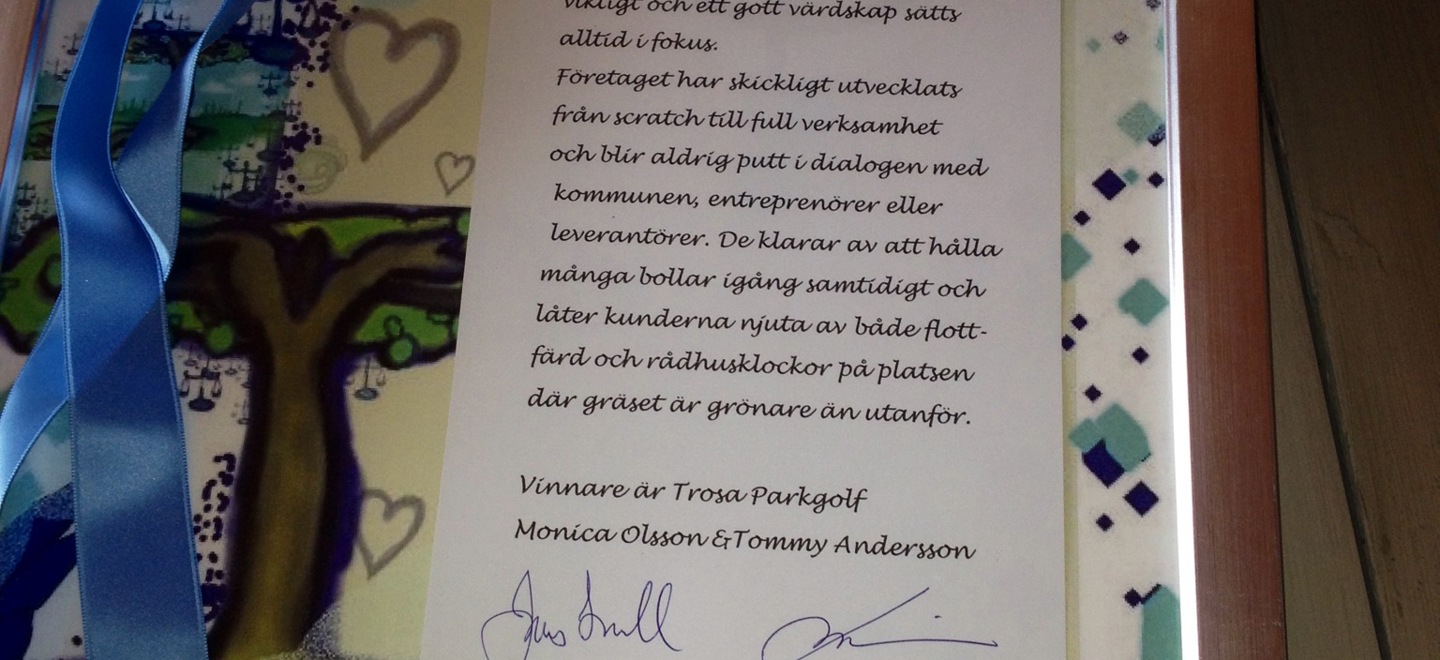 viktigt och ett gott värdskap sätts
alltid i fokus.
Företaget har skickligt utvecklats
från scratch till full verksamhet
och blir aldrig putt i dialogen med
kommunen, entreprenörer eller
leverantörer. De klarar av att hålla
många bollar igång samtidigt och
låter kunderna njuta av både flott-
färd och rådhusklockor på platsen
där gräset är grönare än utanför.
Vinnare är Trosa Parkgolf
Monica Olsson &Tommy Andersson